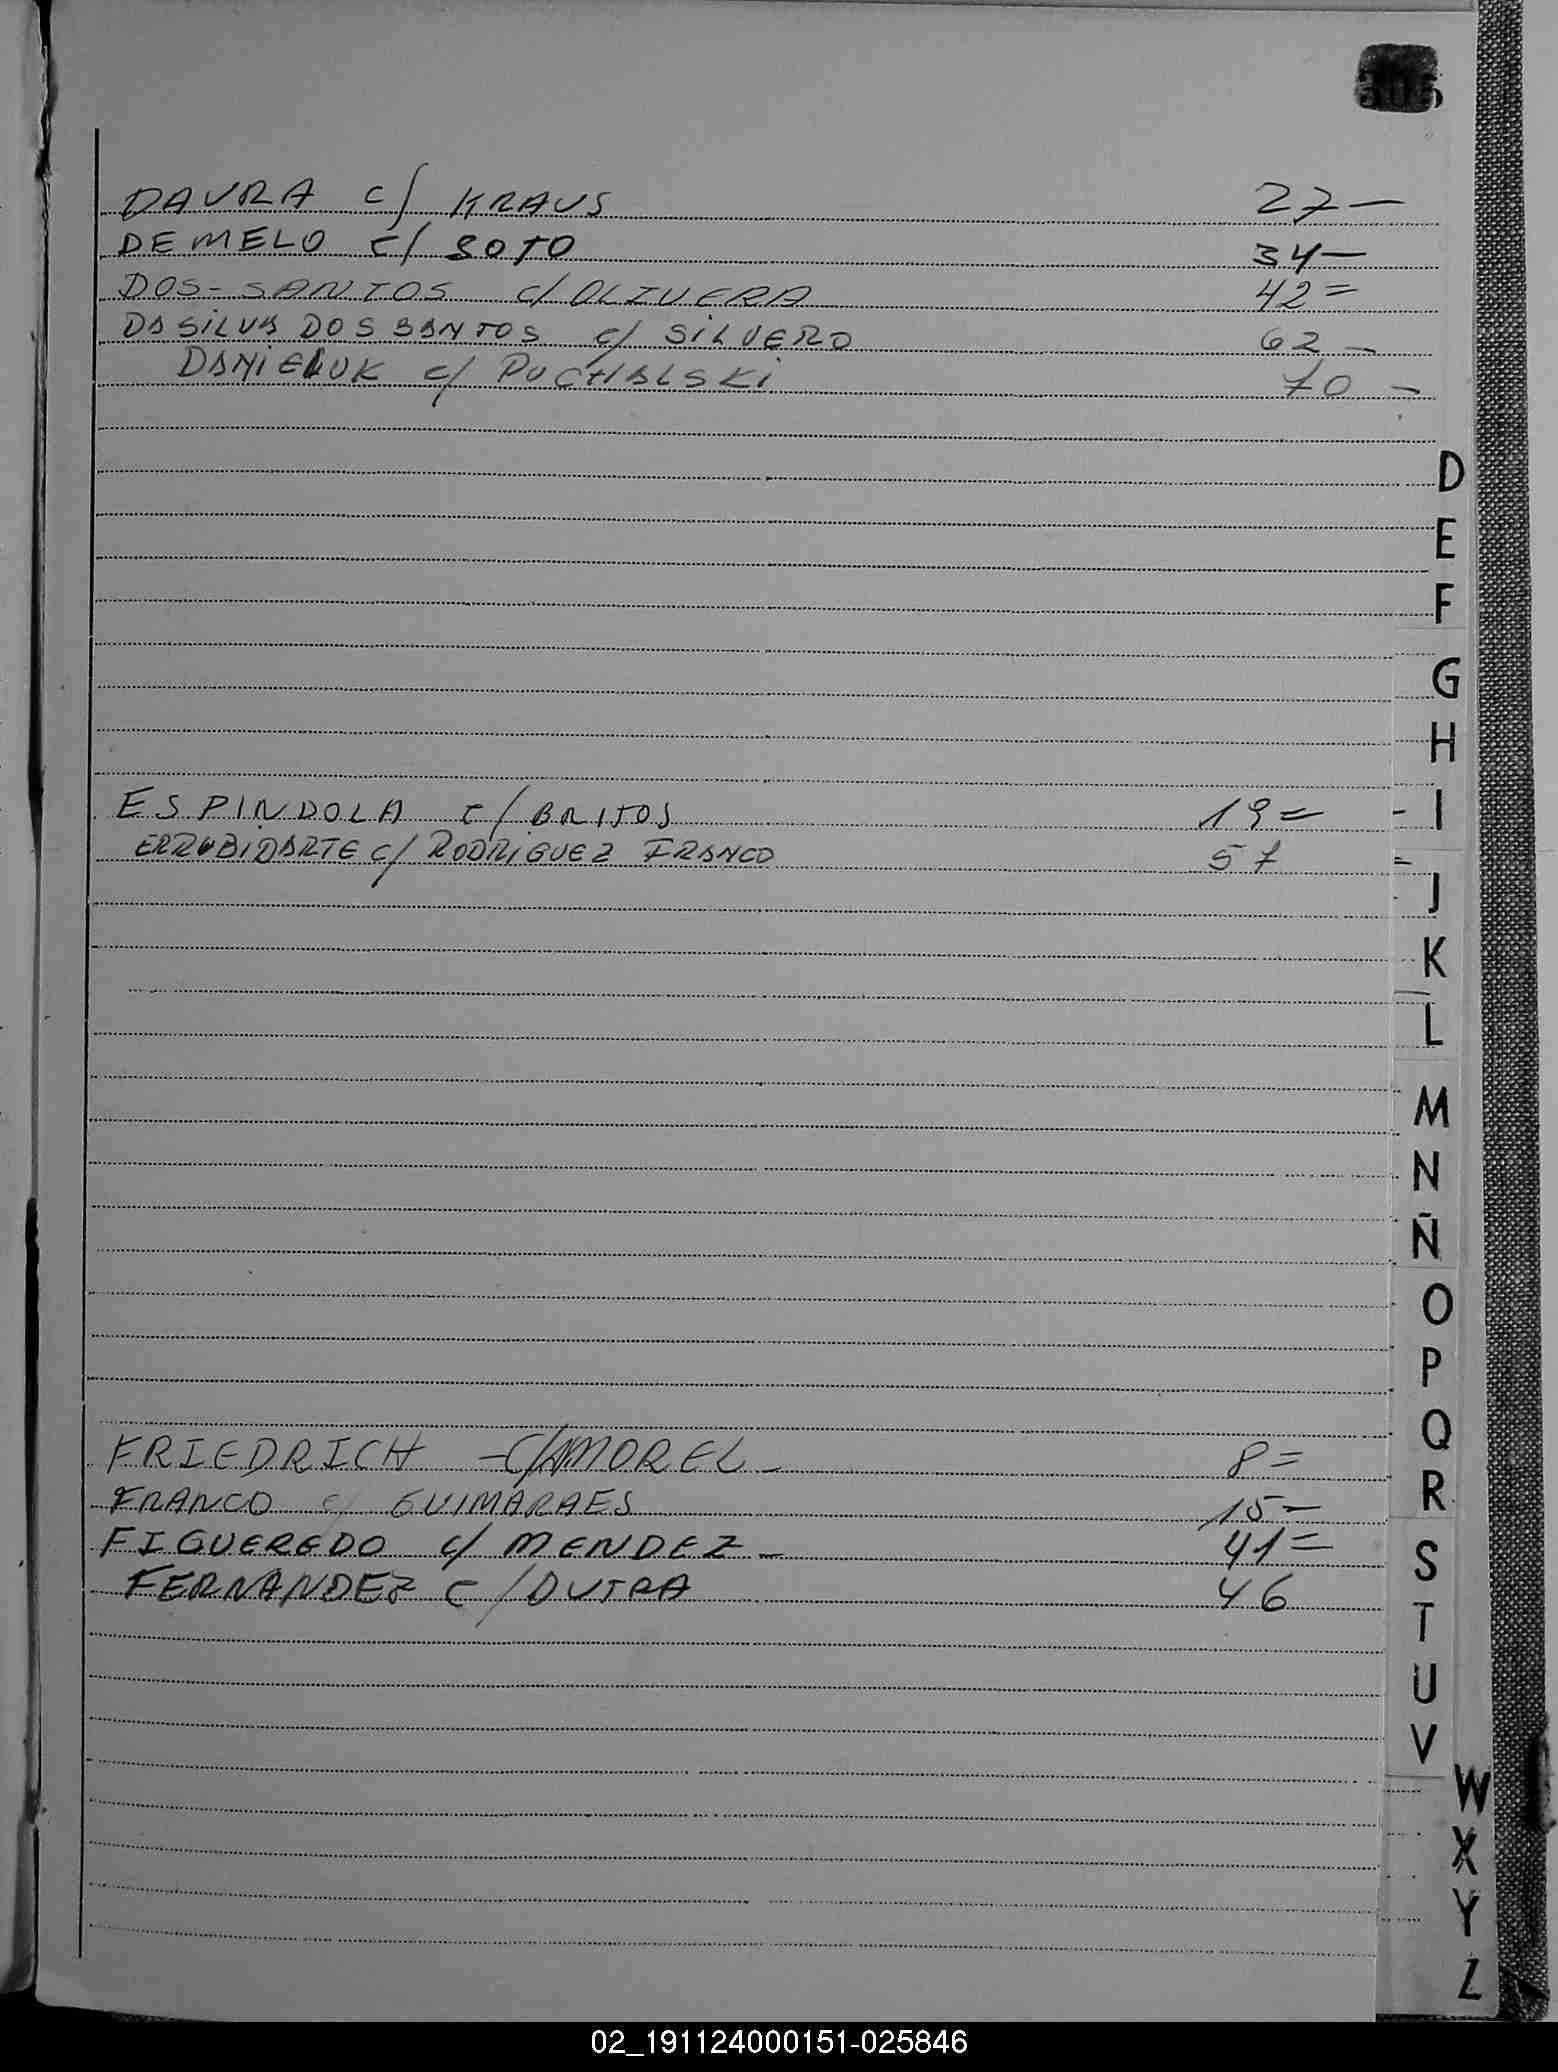 305
DAVRA c/ KRAUS 27 —
DE MELO c/ SOTO 34 —
DOS-SANTOS c/ OLIVERA 42 =
DA SILVA DOS SANTOS c/ SILVERO 62 —
DANIELUK c/ PUCHALSKI 70 —
D
E
F
G
H
ESPINDOLA c/ BRITOS 19 = I
ERROBIDARTE c/ RODRIGUEZ FRANCO 57 =
J
K
L
M
N
Ñ
O
P
Q
FRIEDRICH - C/AMOREL - 8 =
FRANCO c/ GUIMARAES 15 — R
FIGUEREDO c/ MENDEZ - 41 = S
FERNANDEZ c/ DUTRA 46
T
U
V
W
X
Y
Z
02_191124000151-025846